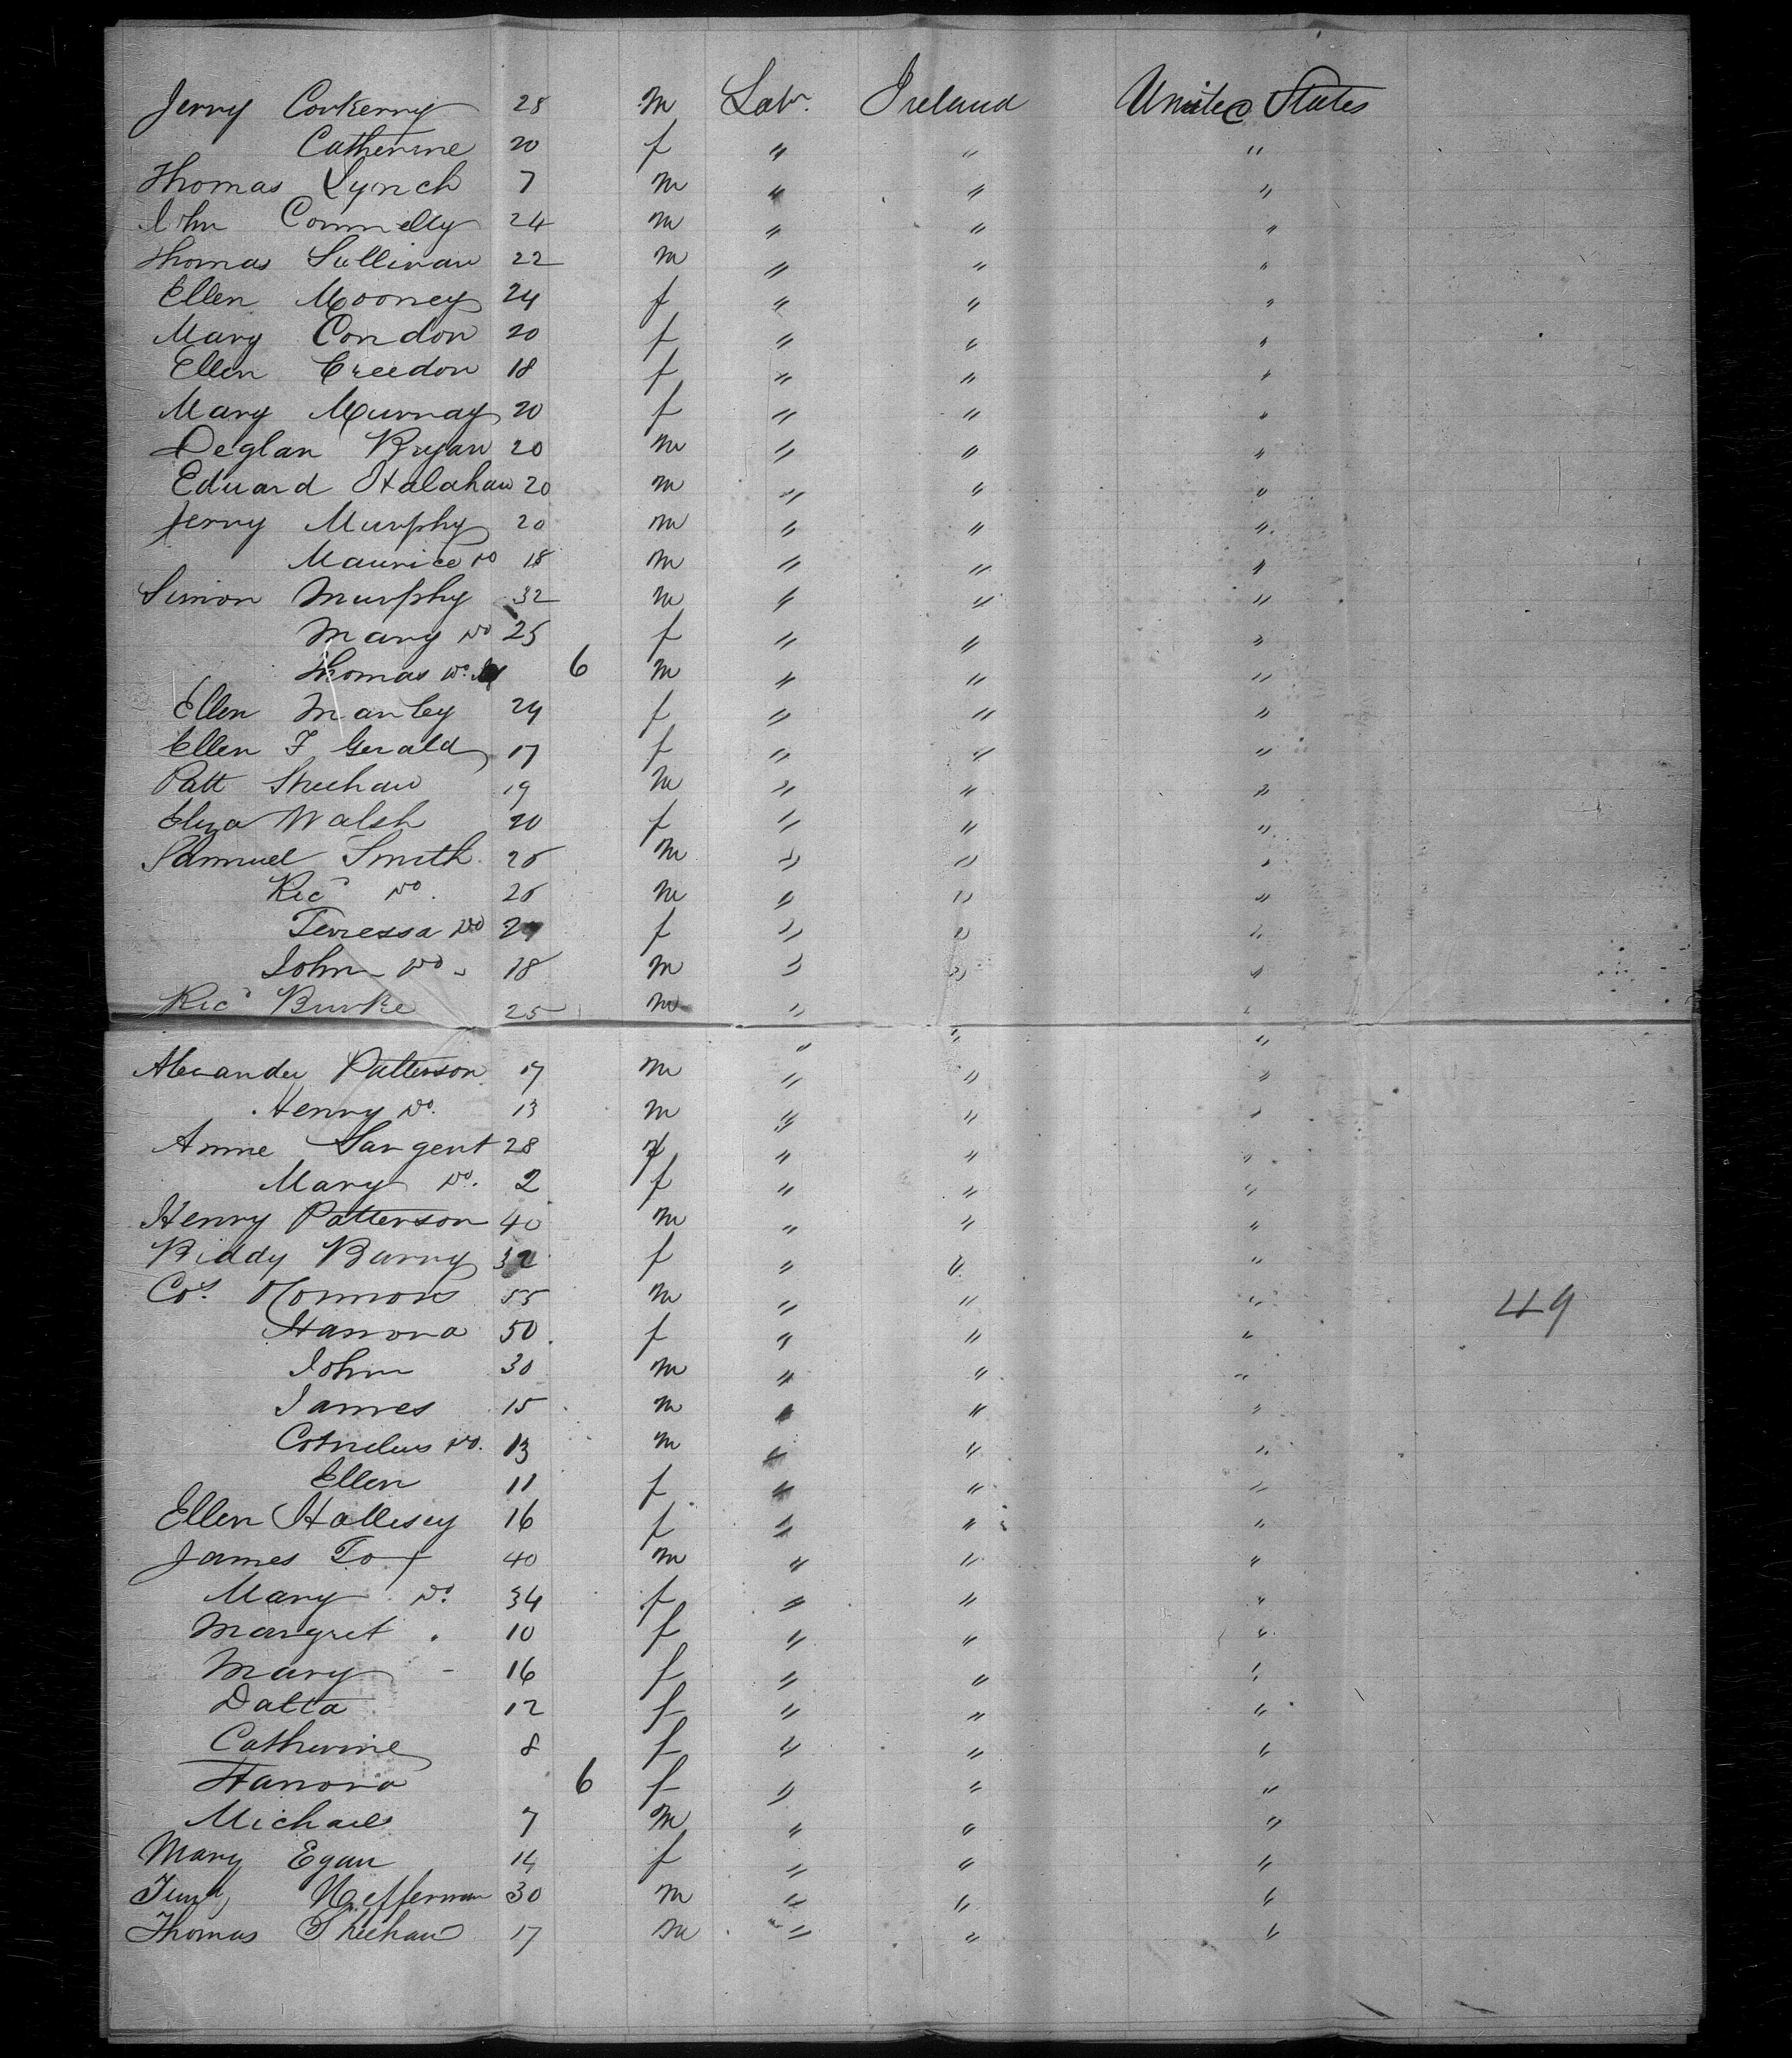 Jerry Corkerry 28 m Lab. Ireland United States
Catherine 20 f " " "
Thomas Lynch 7 m " " "
John Connelly 24 m " " "
Thomas Sullivan 22 m " " "
Ellen Mooney 24 f " " "
Mary Condon 20 f " " "
Ellen Creedon 18 f " " "
Mary Murray 20 f " " "
Deglan Bryan 20 m " " "
Eduard Halahan 20 m " " "
Jerry Murphy 20 m " " "
Maurice Do 18 m " " "
Simon Murphy 32 m " " "
Mary Do 25 f " " "
Thomas Do. 6 m " " "
Ellen Manley 24 f " " "
Ellen F Gerald 17 f " " "
Patt Sheehan 19 m " " "
Eliza Walsh 20 f " " "
Samuel Smith 26 m " " "
Ricd Do. 26 m " " "
Teressa Do 24 f " " "
John Do. 18 m " " "
Ricd Burke 25 m " " "
" " "
Alexander Patterson 17 m " " "
Henry Do. 13 m " " "
Anne Sargent 28 f " " "
Mary Do. 2 f " " "
Henry Patterson 40 m " " "
Biddy Barry 32 f " " "
Cos. OConnors 55 m " " " 49
Hanora 50 f " " "
John 30 m " " "
James 15 m " " "
Cornelius Do. 13 m " " "
Ellen 11 f " " "
Ellen Hallisey 16 f " " "
James Fox 40 m " " "
Mary Do. 34 f " " "
Margret " 10 f " " "
Mary - 16 f " " "
Dalta 12 f " " "
Catherine 8 f " " "
Hanora 6 f " " "
Michael 7 m " " "
Mary Egan 14 f " " "
Heffernan 30 m " " "
Thomas Sheehan 17 m " " "